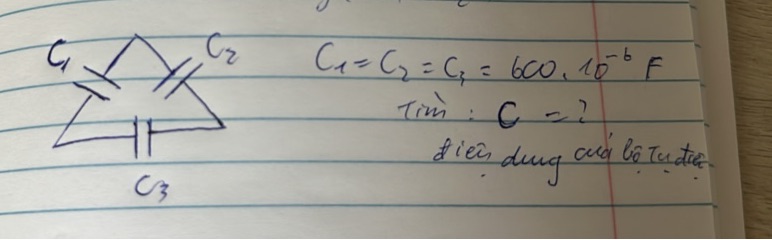 C₁
C₂
C₃
C₁ = C₂ = C₃ = 600 . 10⁻⁶ F
Tìm : C = ?
điện dung của bộ tụ điện